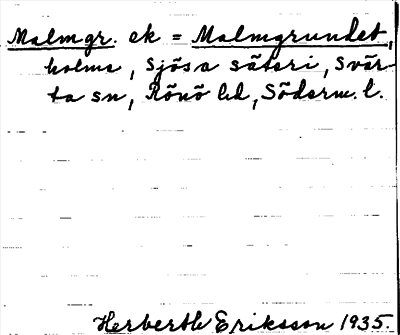 Malmgr. ek = Malmgrundet,
holme, Sjösa säteri, Svär-
ta sn, Rönö hd, Söderm. l.
Herberth Eriksson 1935.